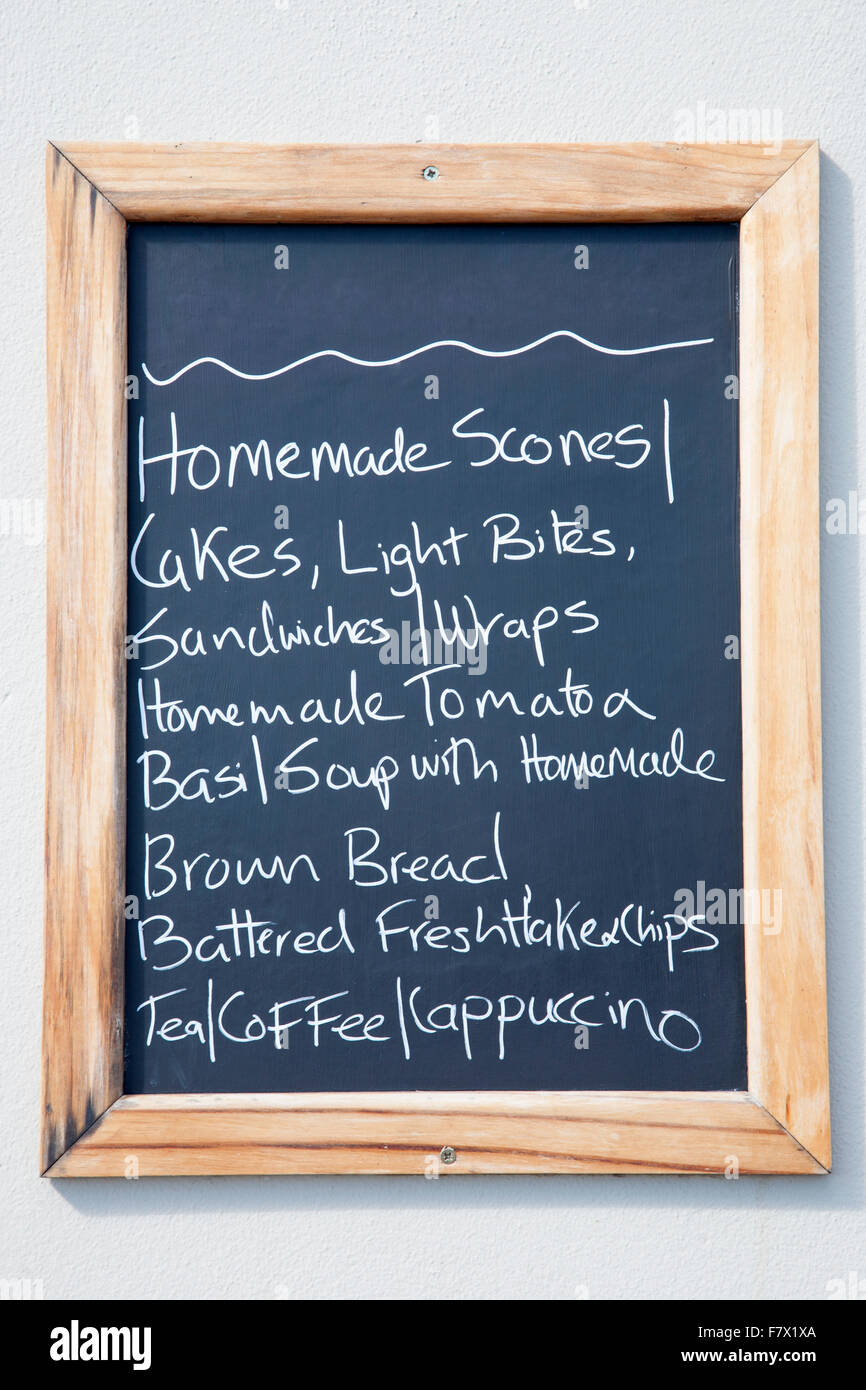 Homemade Scones|
Cakes, Light Bites,
Sandwiches|Wraps
Homemade Tomato &
Basil|Soup with Homemade
Brown Bread,
Battered Fresh Hake & Chips
Tea|Coffee|Cappuccino
alamy
Image ID: F7X1XA
www.alamy.com